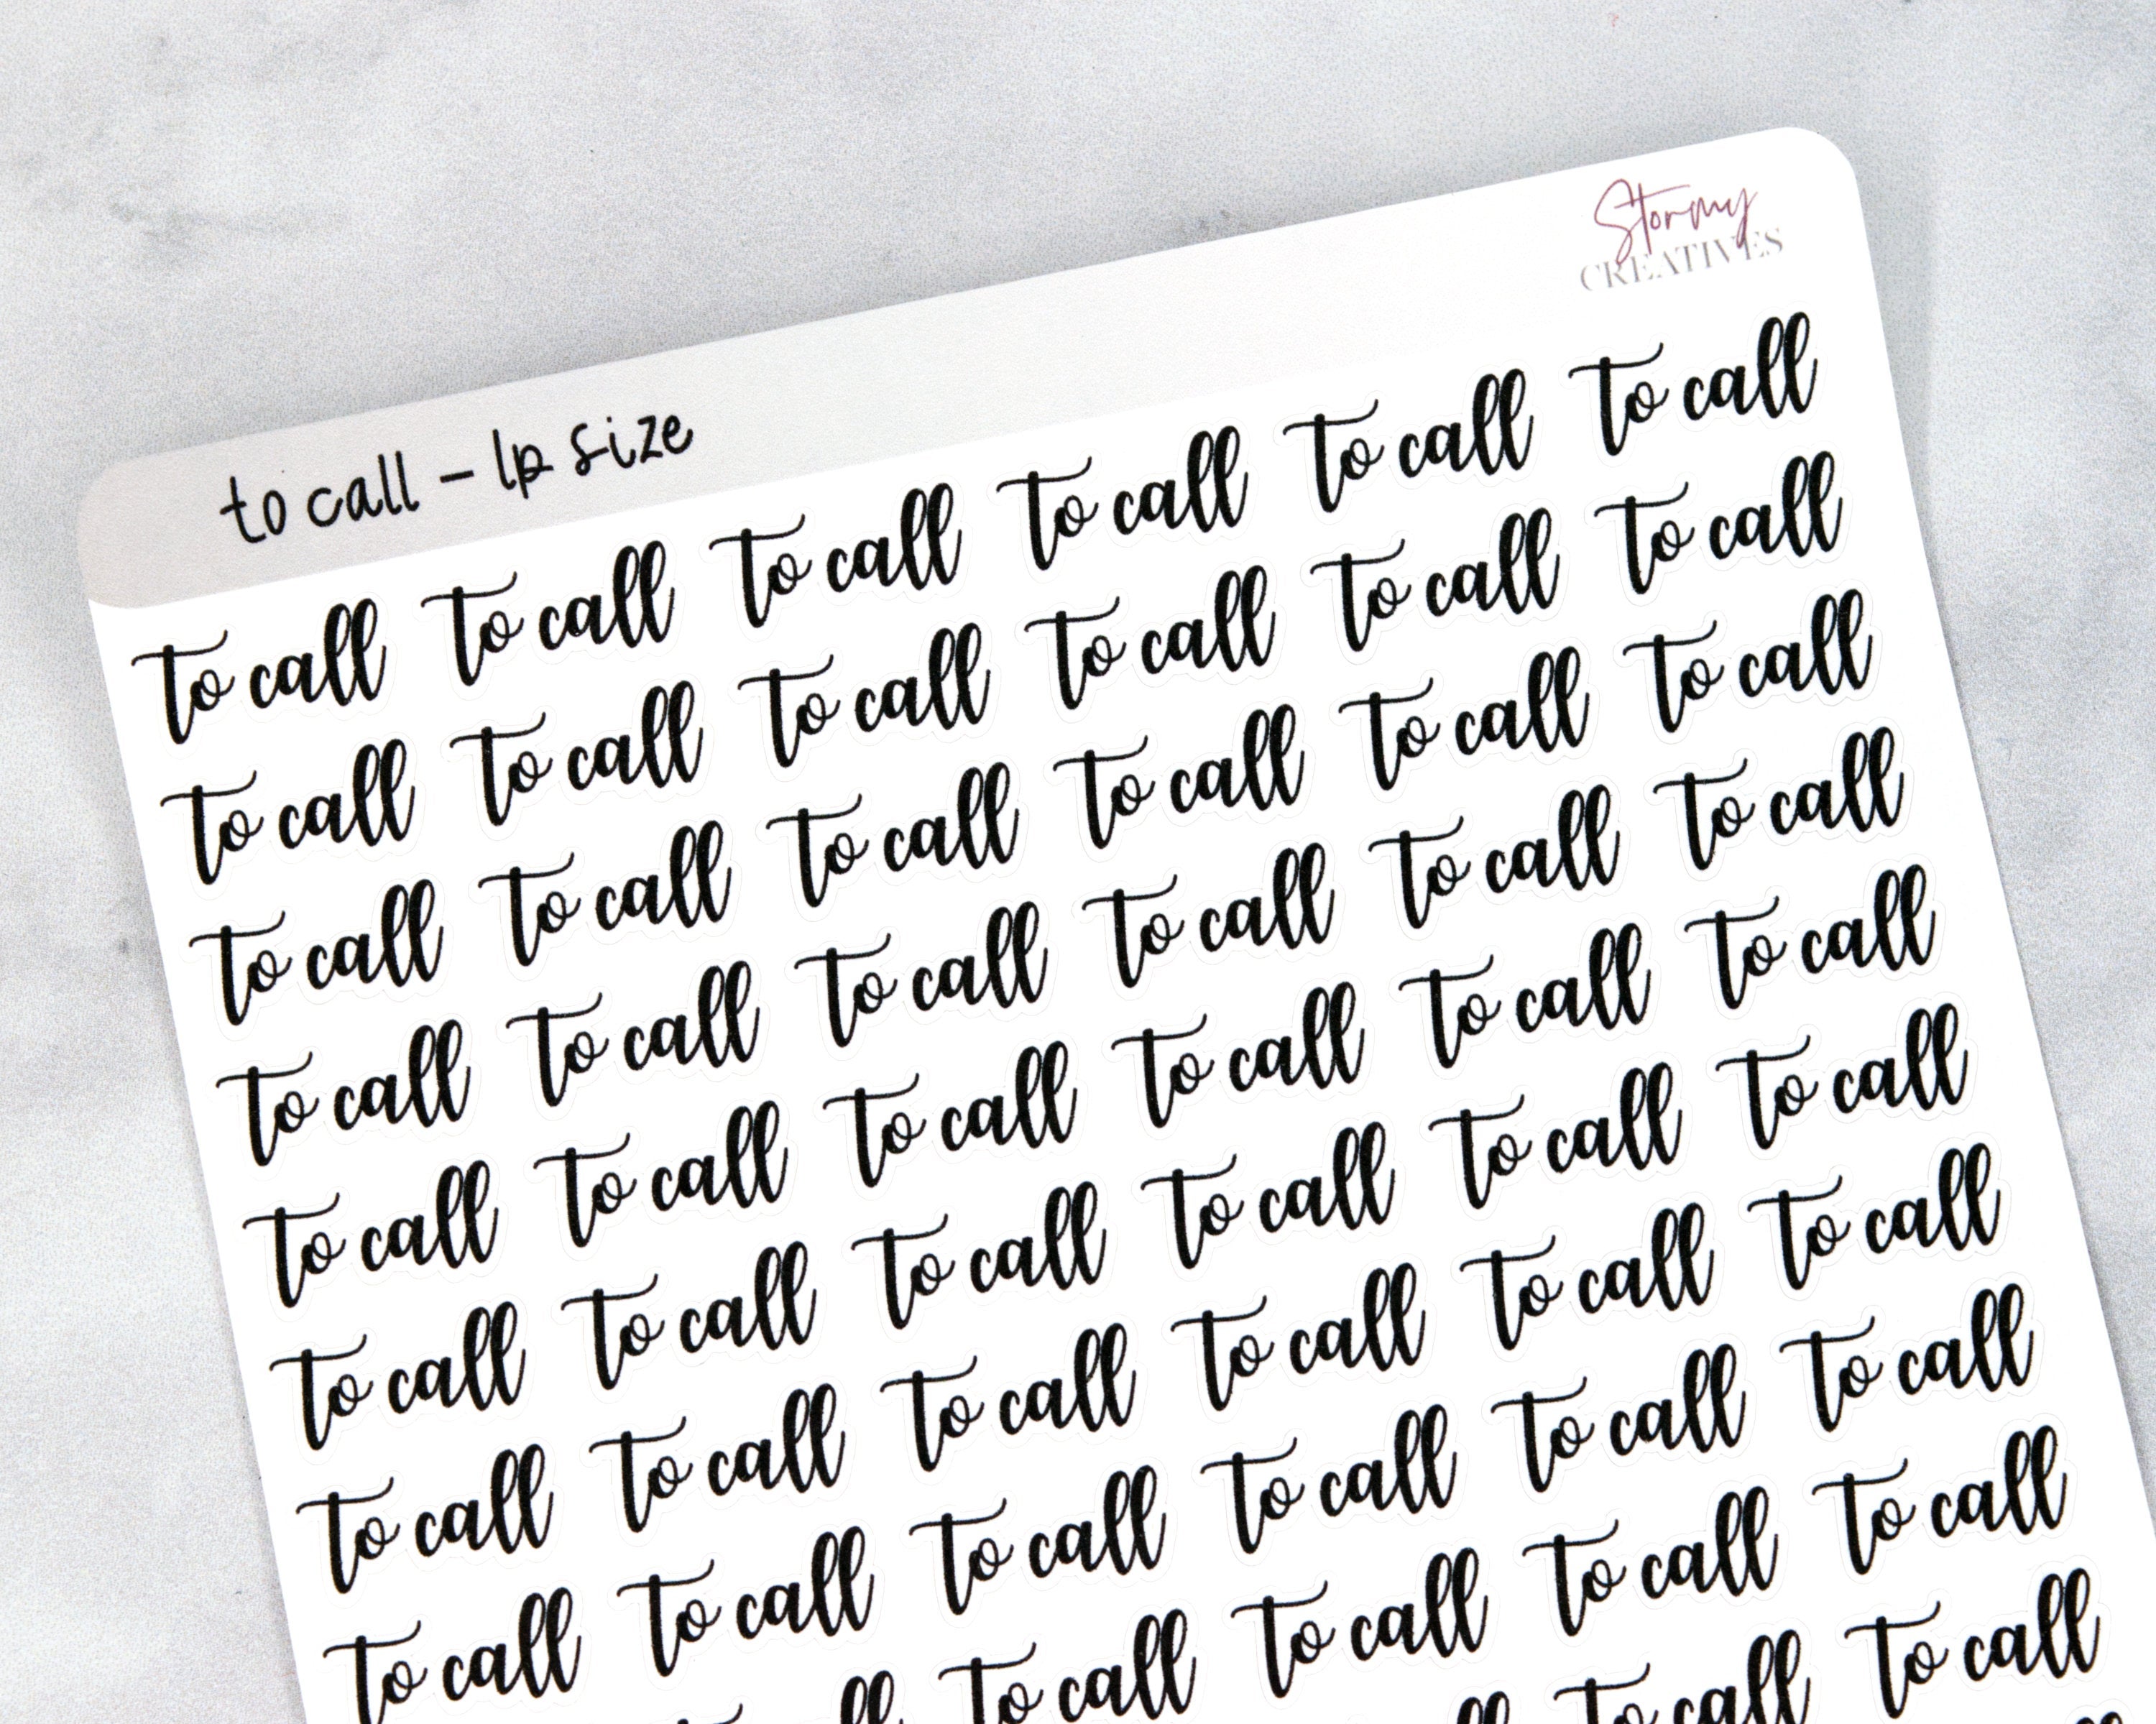 Stormy
CREATIVES
to call - lp size
to call to call to call to call to call to call
to call to call to call to call to call to call
to call to call to call to call to call to call
to call to call to call to call to call to call
to call to call to call to call to call to call
to call to call to call to call to call to call
to call to call to call to call to call to call
to call to call to call to call to call to call
to call to call to call to call
to call to call